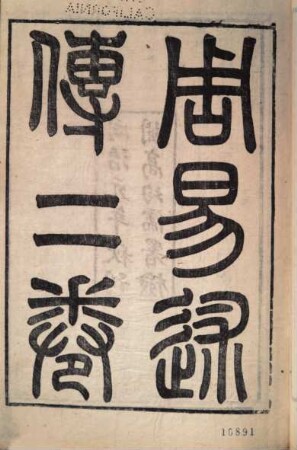 周易述
傳二卷
10891